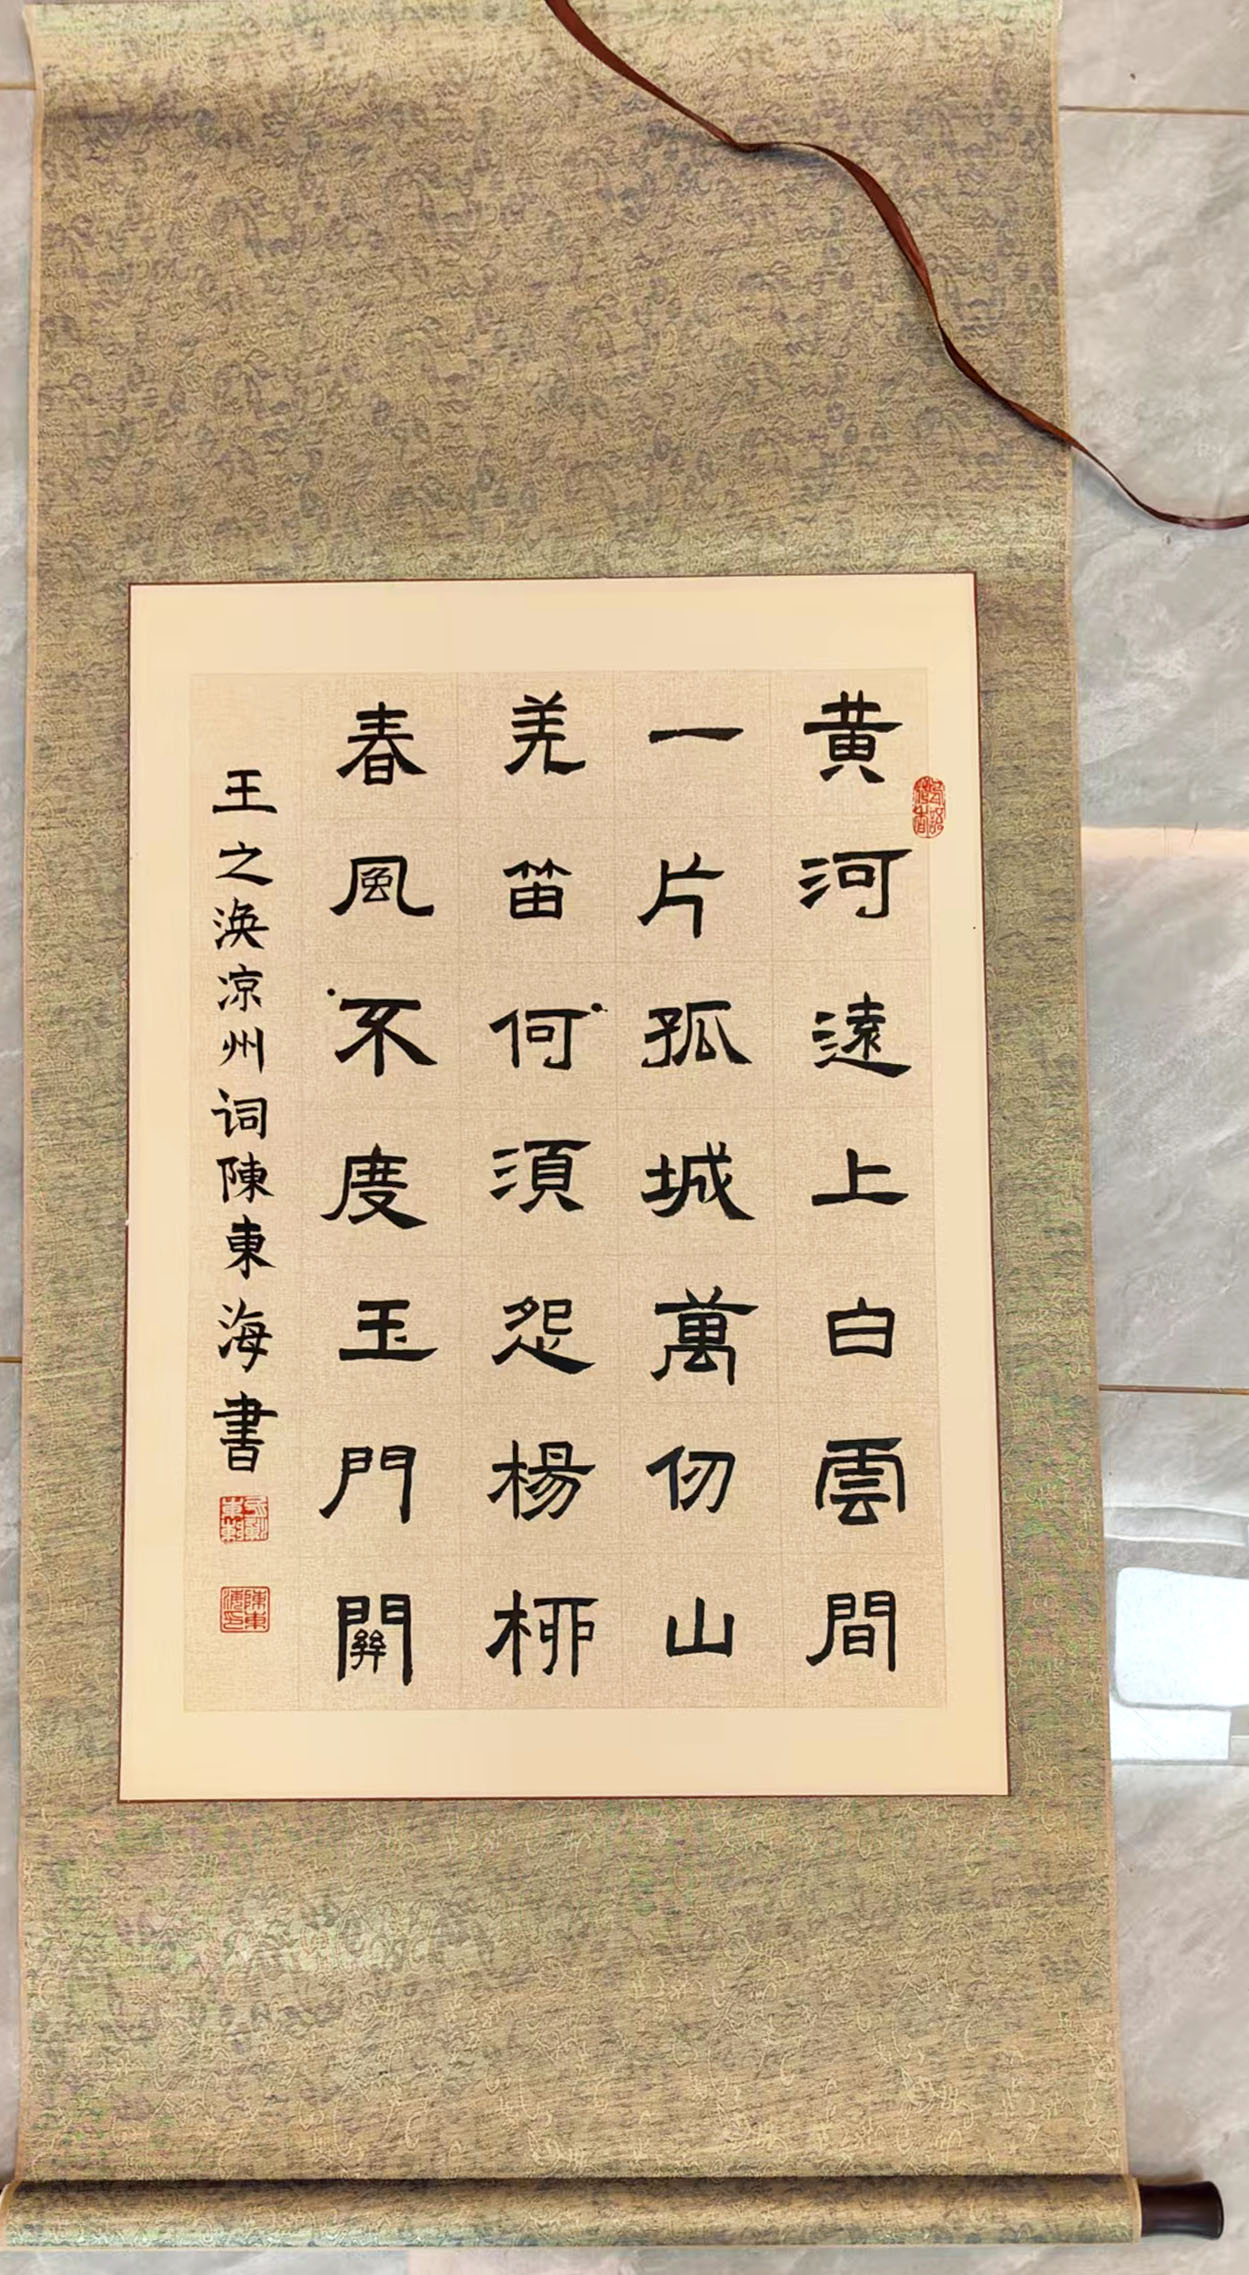 黄河遠上白雲間
一片孤城萬仞山
羌笛何須怨楊柳
春風不度玉門關
王之涣凉州词陳東海書
陳東海印